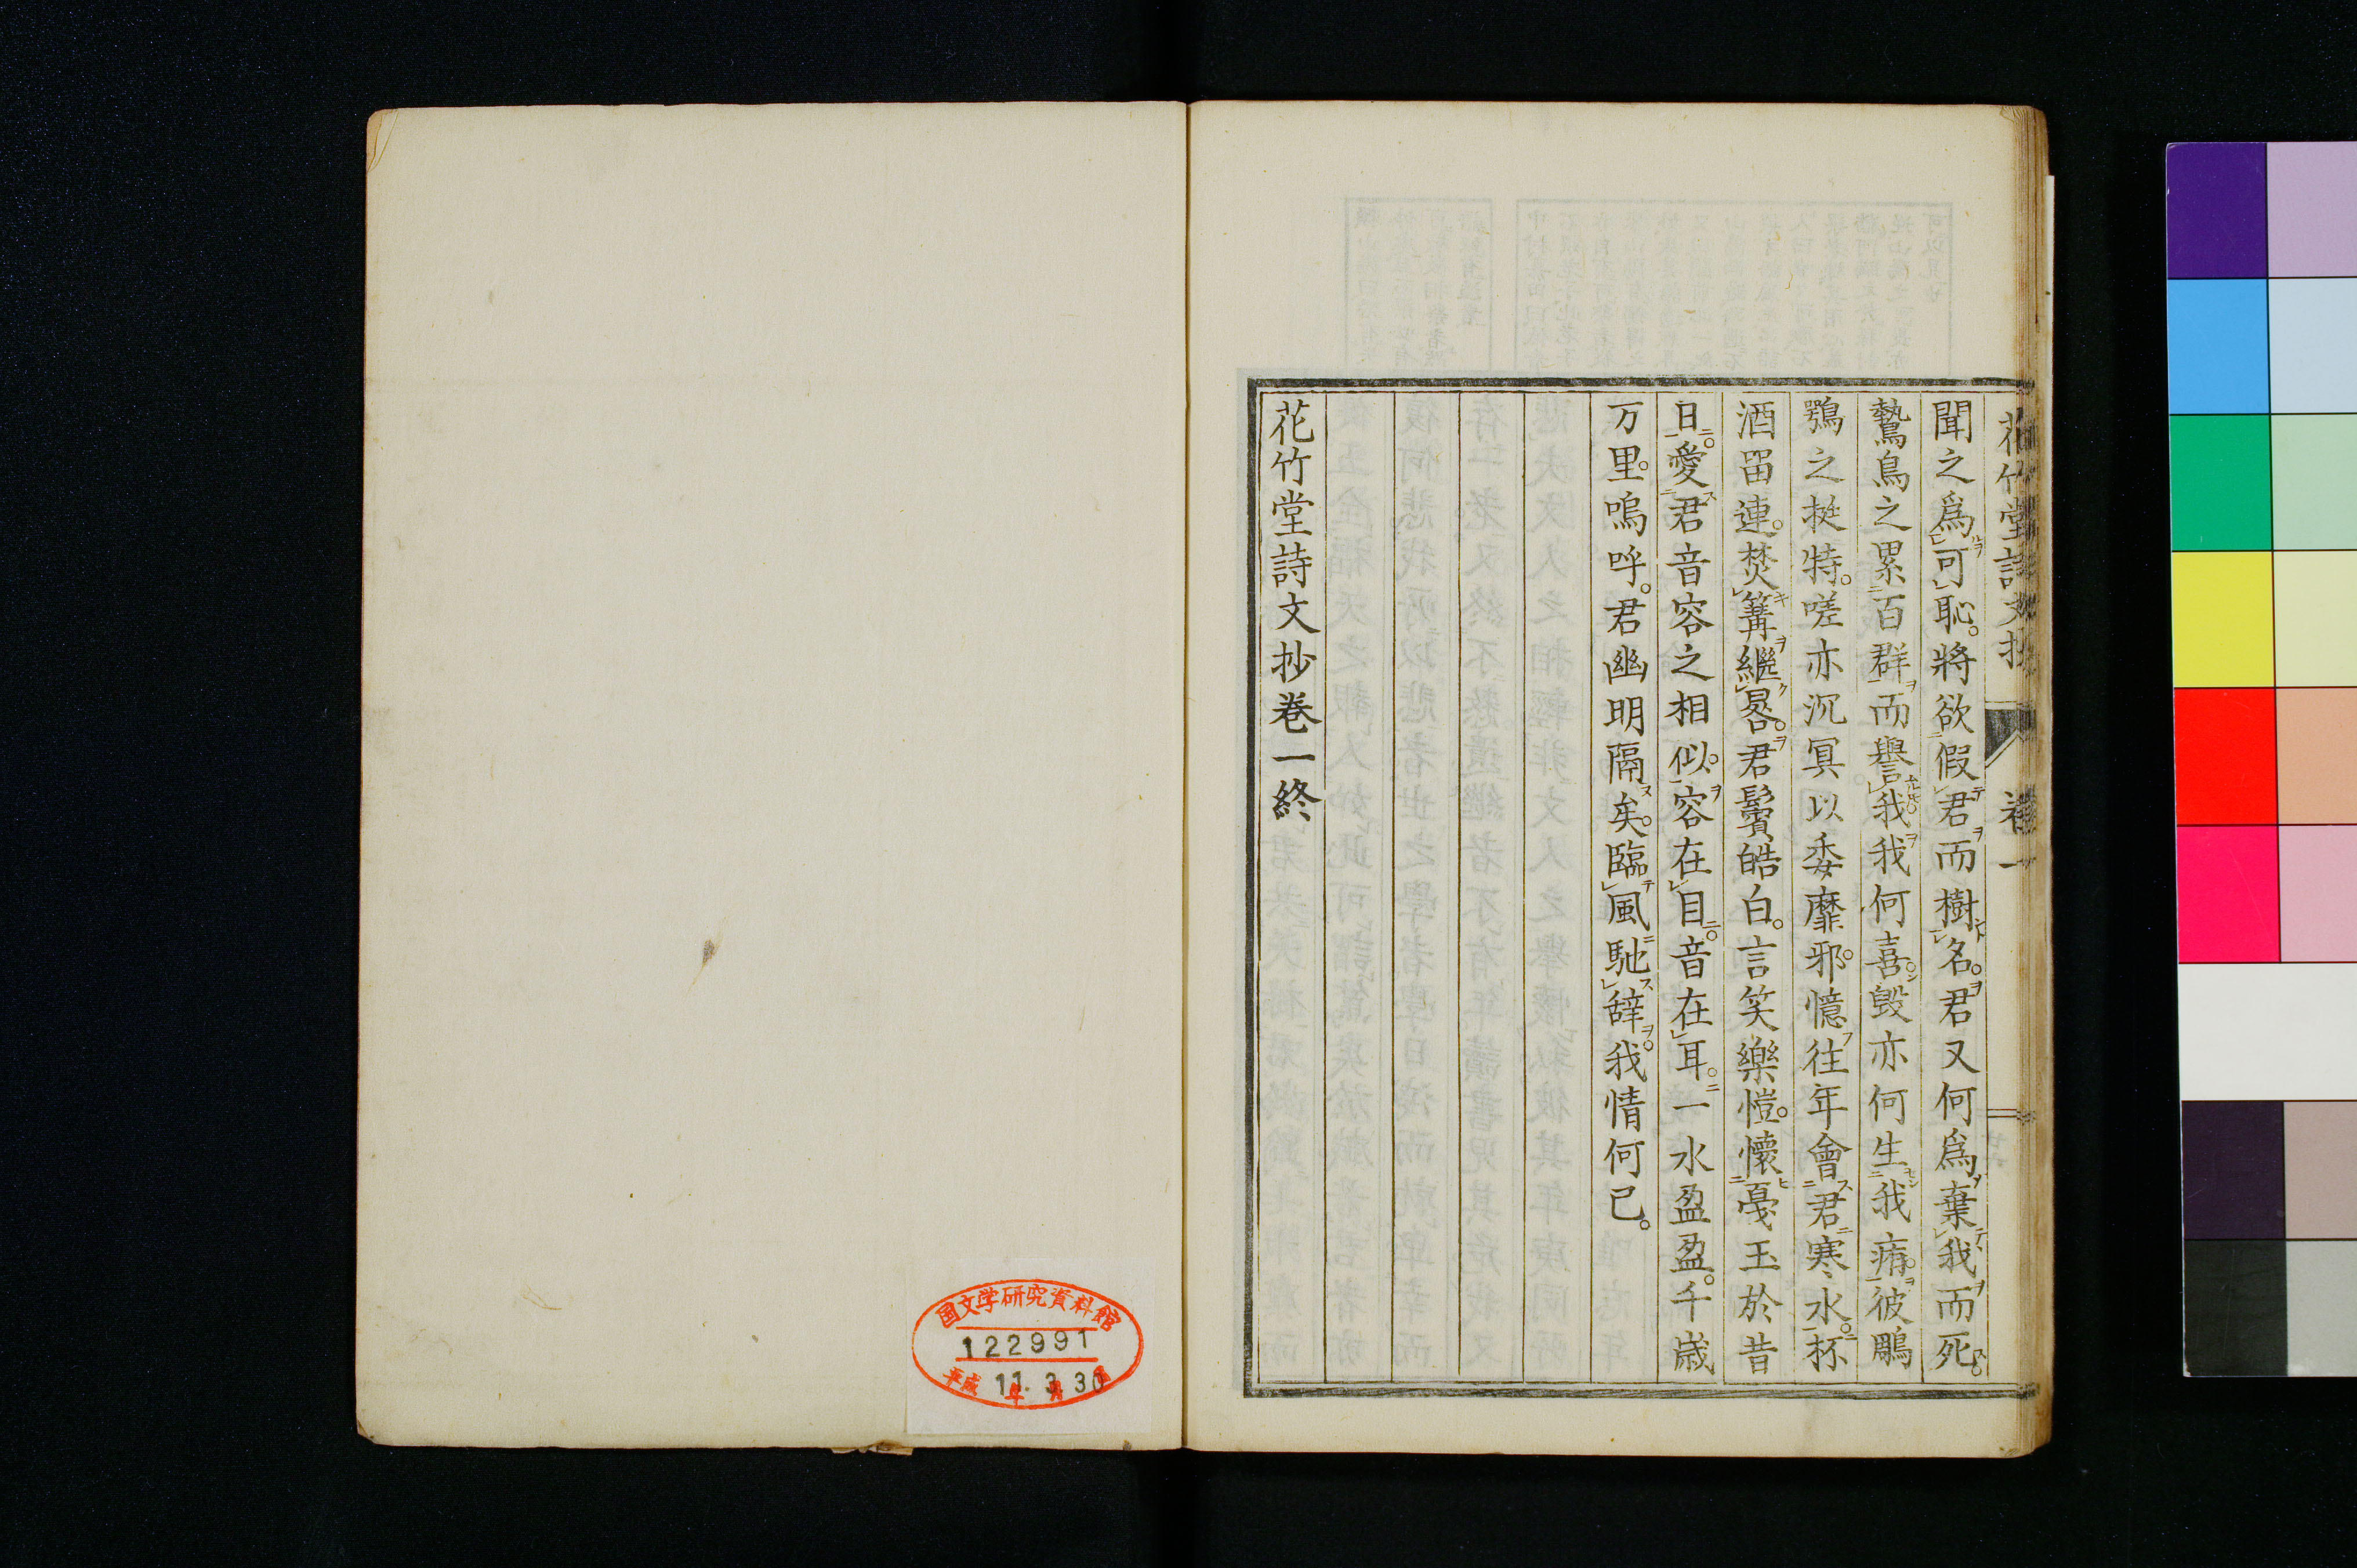 花竹堂詩文抄 卷一
聞之爲可恥。將欲假君而樹名。君又何爲棄我而死。
鷙鳥之累百群而譽我。我何喜。毀亦何生我痛。彼鵰
鶚之挺特。嗟亦沉冥以委靡邪。憶往年會君寒水。杯
酒畱連。焚篝繼晷。君鬢皓白。言笑樂愷。懷戞玉於昔
日。愛君音容之相似。容在目。音在耳。一水盈盈。千歲
万里。嗚呼。君幽明隔矣。臨風馳辭。我情何已。
花竹堂詩文抄卷一終
国文学研究資料館
122991
平成 11. 3. 30